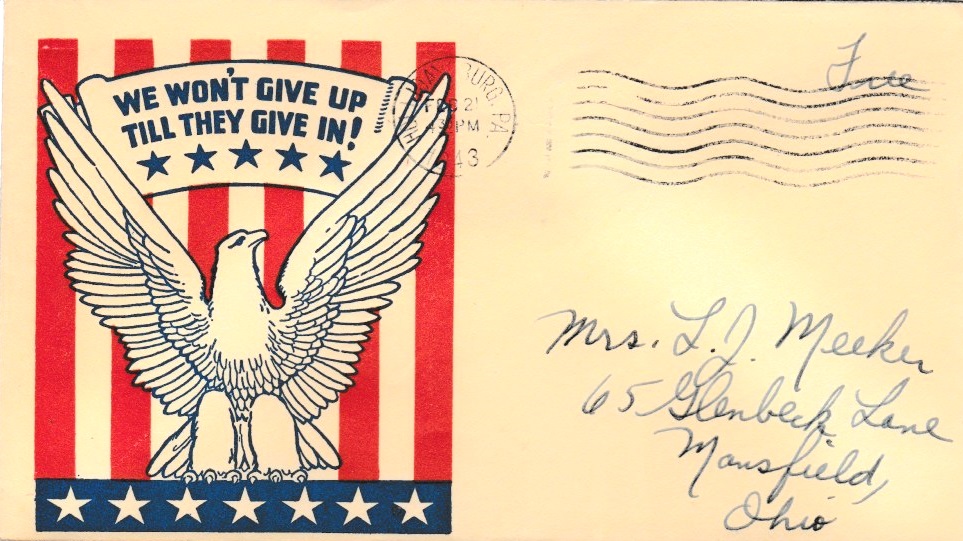 WE WON'T GIVE UP
TILL THEY GIVE IN!
BURG, PA
21
PM
43
Free
Mrs. L. J. Meeker
65 Glenbeck Lane
Mansfield,
Ohio